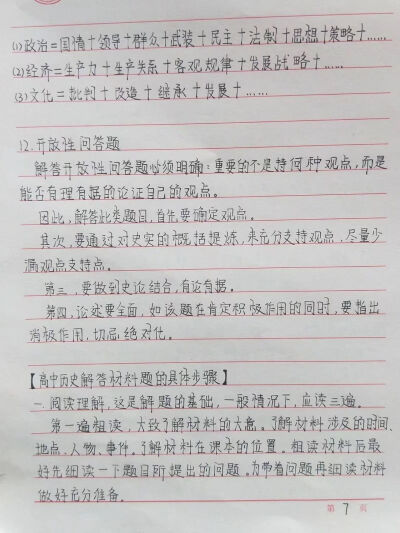 (1)政治=国情+领导+群众+武装+民主+法制+思想+策略+……
(2)经济=生产力+生产关系+客观规律+发展战略+……
(3)文化=批判+改造+继承+发展+……
12.开放性问答题
解答开放性问答题必须明确:重要的不是持何种观点,而是
能否有理有据的论证自己的观点。
因此,解答此类题目,首先要确定观点。
其次,要通过对史实的概括提炼,来充分支持观点,尽量少
漏观点支持点。
第三,要做到史论结合,有论有据。
第四,论述要全面,如该题在肯定积极作用的同时,要指出
消极作用,切忌绝对化。
【高中历史解答材料题的具体步骤】
一.阅读理解,这是解题的基础,一般情况下,应读三遍。
第一遍粗读,大致了解材料的大意。了解材料涉及的时间、
地点、人物、事件。了解材料在课本的位置。粗读材料后最
好先细读一下题目所提出的问题。为带着问题再细读材料
做好充分准备。
第 7 页